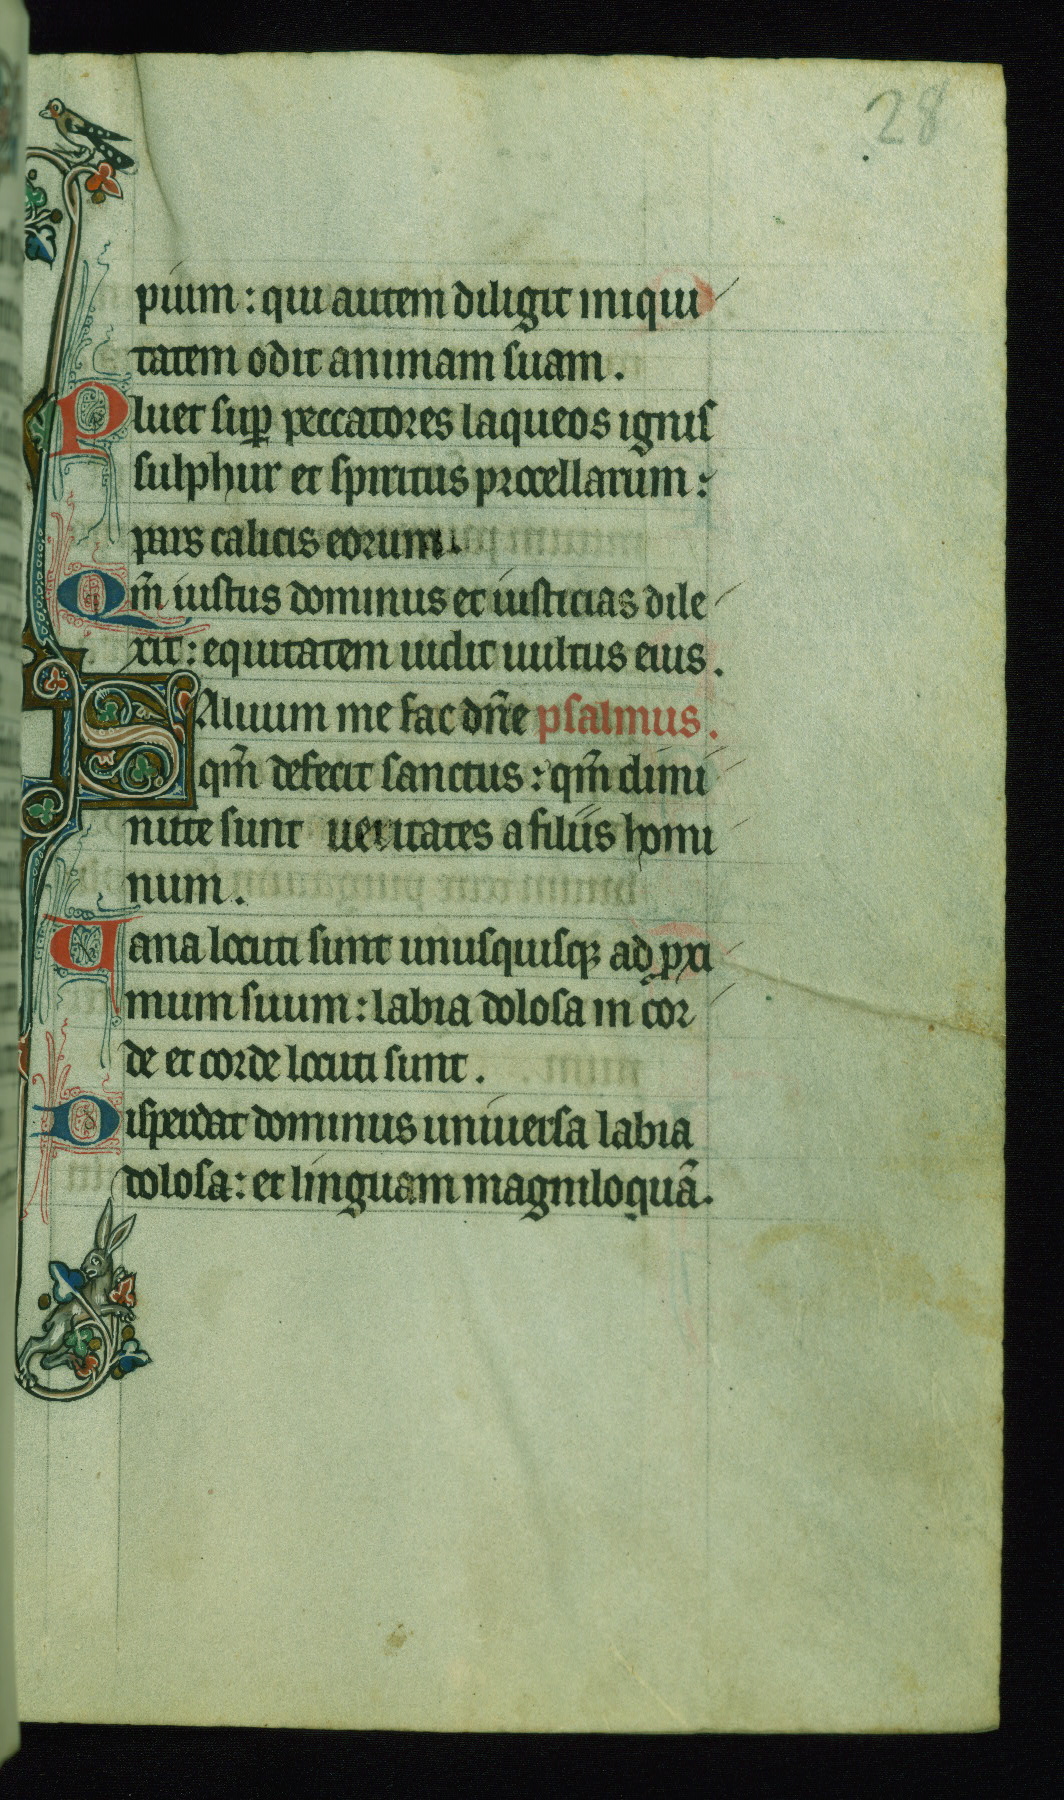 28
pium : qui autem diligit iniqui
tatem odit animam suam .
Pluet sup̲ peccatores laqueos ignis
sulphur et spiritus procellarum :
pars calicis eorum .
Qm̃ iustus dominus et iusticias dile
xit : equitatem uidit uultus eius .
SAluum me fac dñe psalmus .
qm̃ defecit sanctus : qm̃ dimi
nute sunt ueritates a filiis homi
num .
Uana locuti sunt unusquisqꝫ ad ꝓxi
mum suum : labia dolosa in cor
de et corde locuti sunt .
Disperdat dominus uniuersa labia
dolosa : et linguam magniloquã .